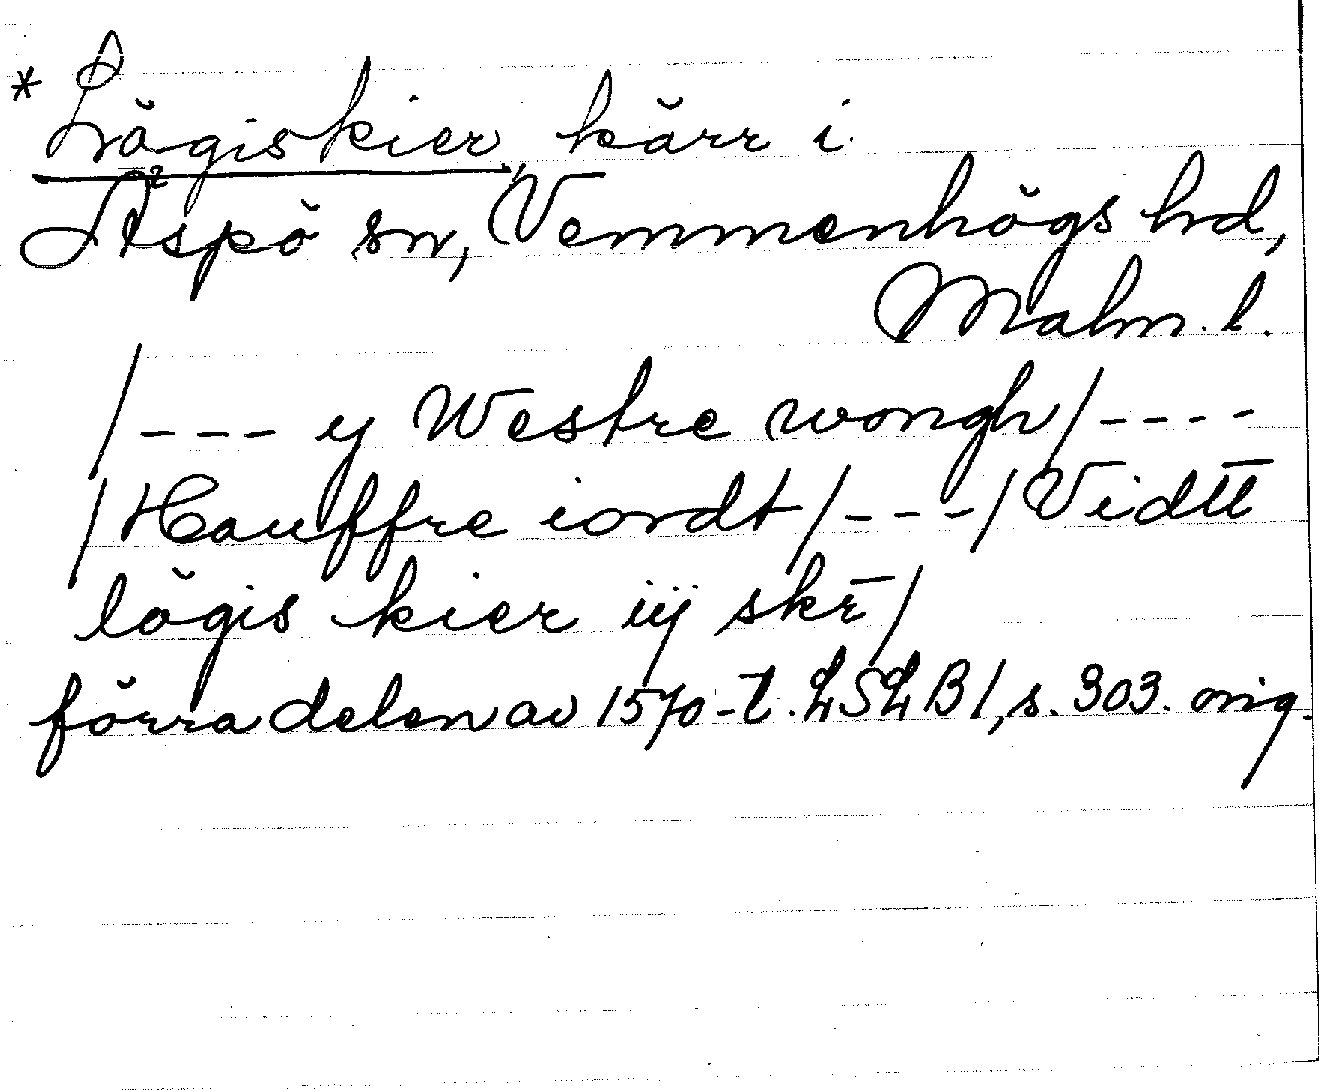 * Lögiskier, kärr i
Äspö sn, Vemmenhögs hd,
Malm. l.
/--- y Westre wongh/----
/Hauffre iordt/---/Vidtt
lögis kier iij skr̄/
förra delen av 1570-t. LSLB1, s. 303. orig.